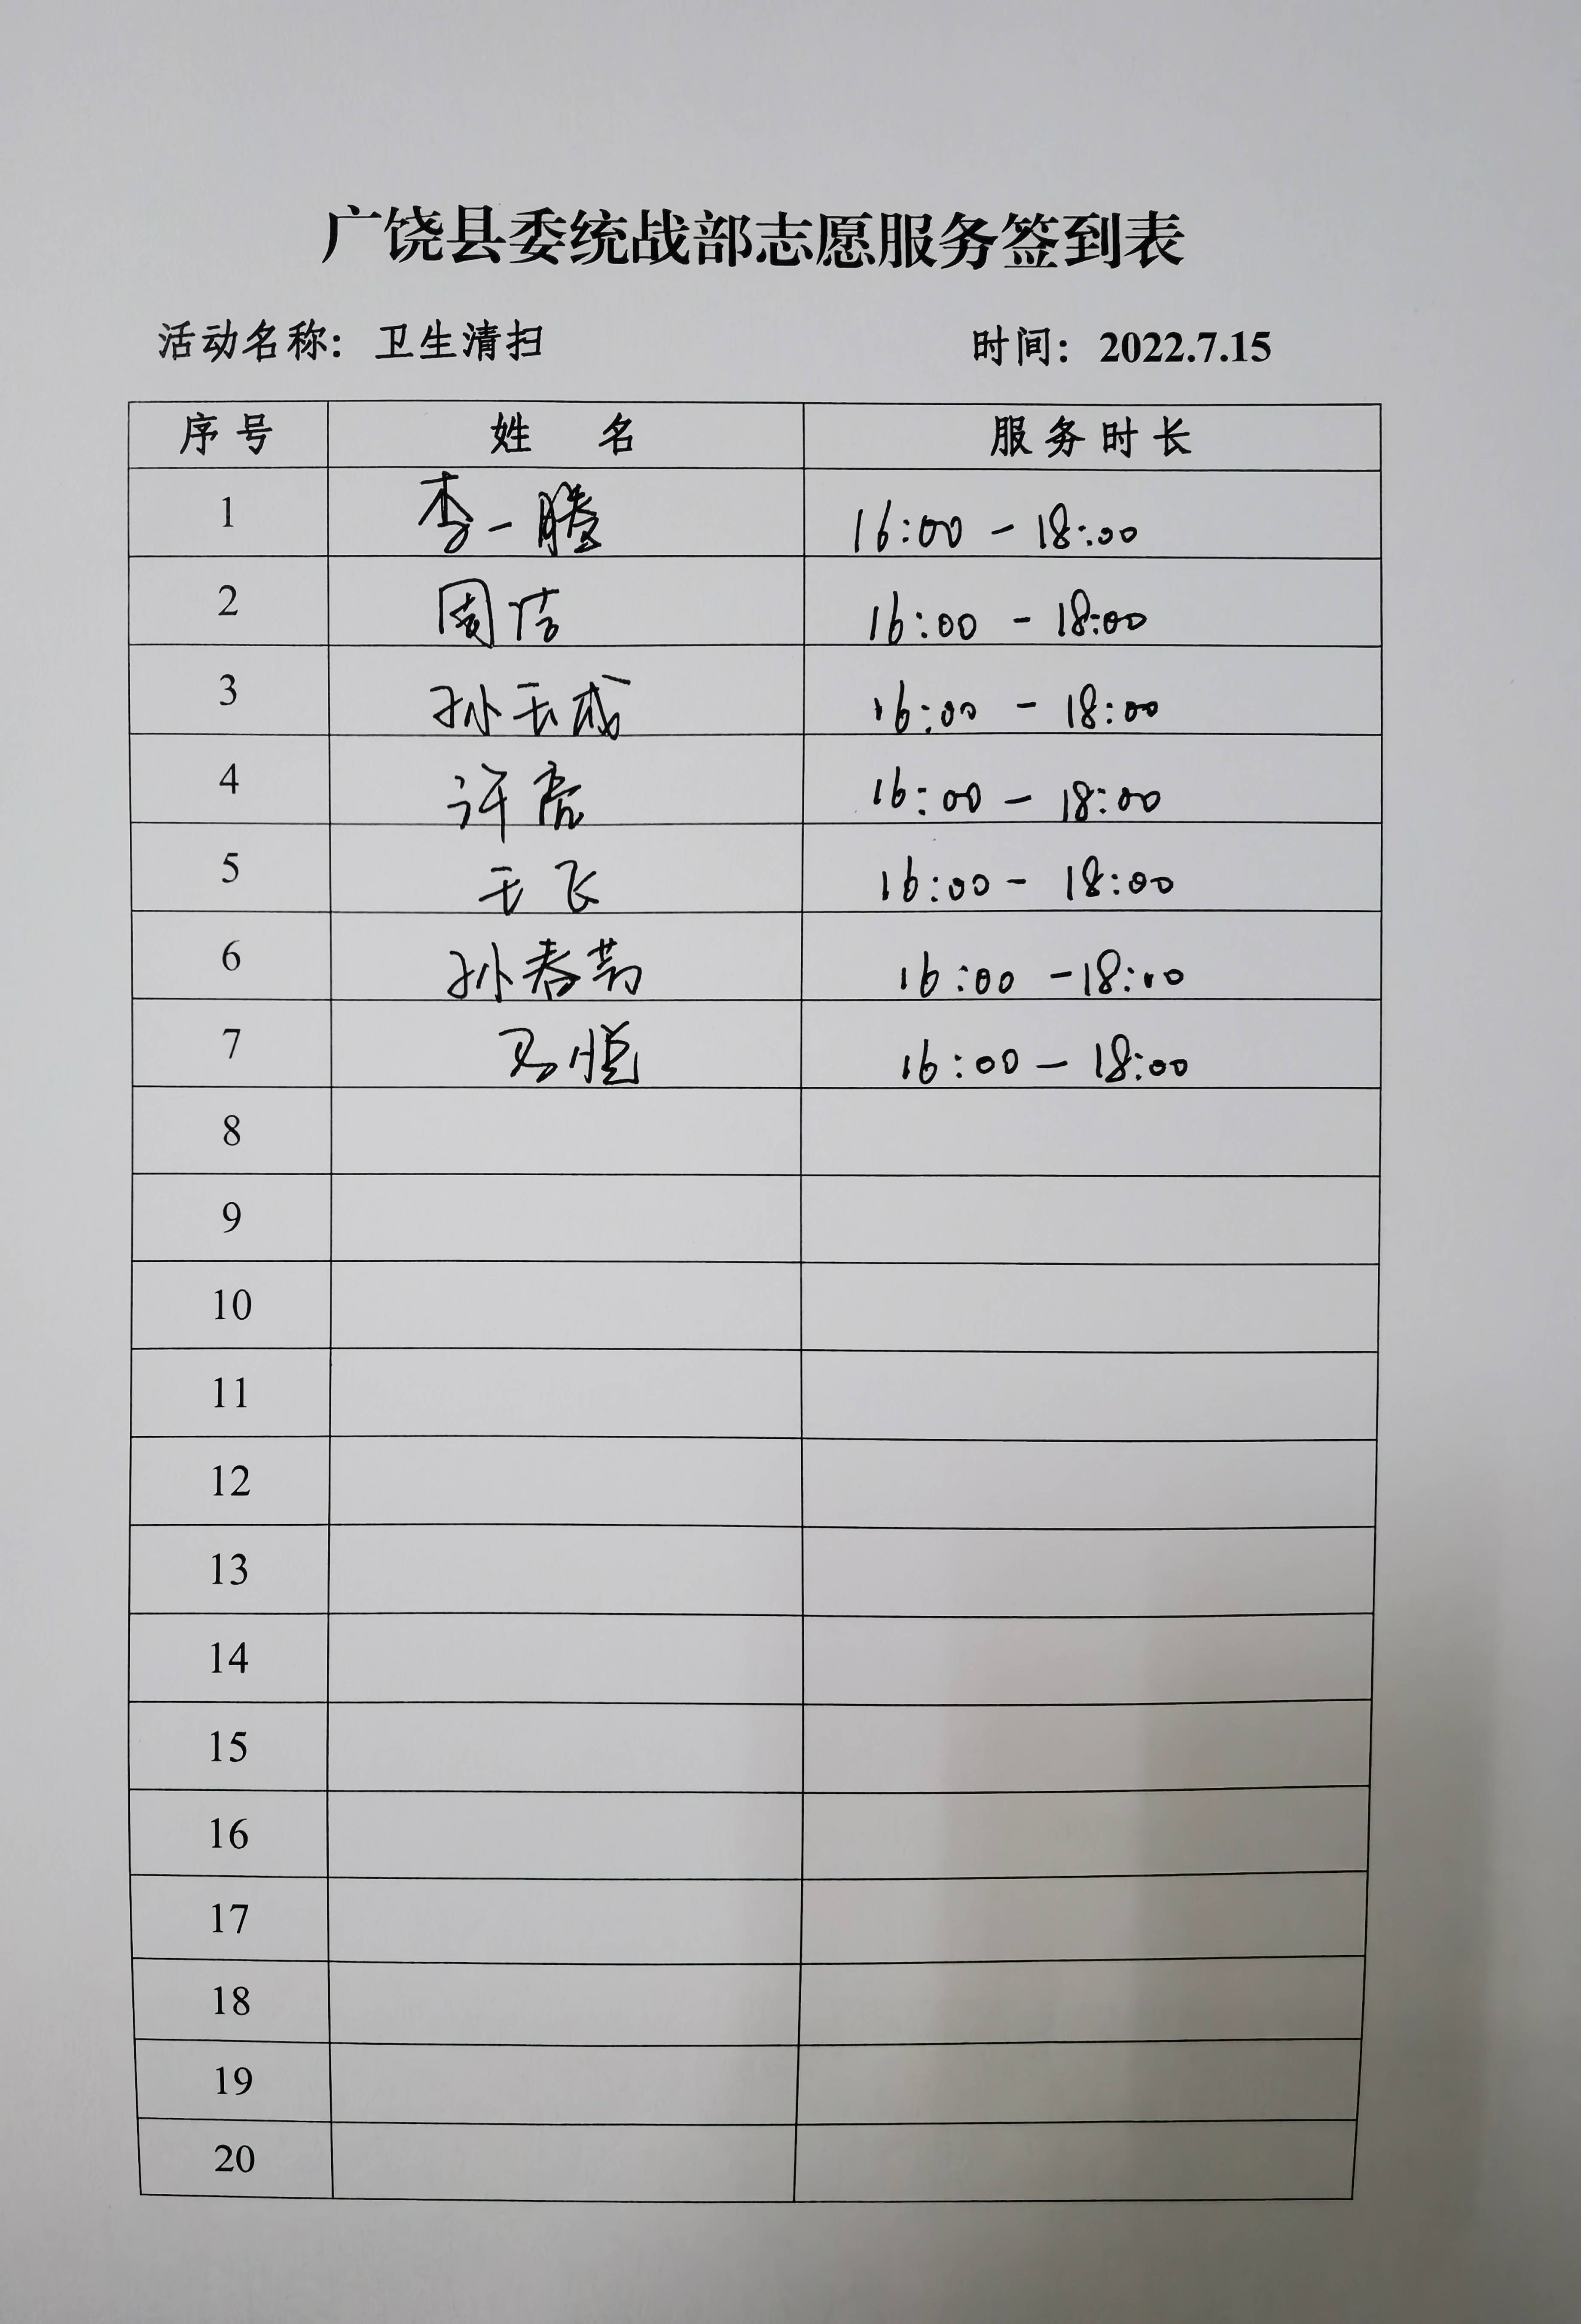 广饶县委统战部志愿服务签到表
活动名称：卫生清扫 时间：2022.7.15
序号 姓 名 服务时长
1 李一腾 16:00 - 18:00
2 周洁 16:00 - 18:00
3 孙玉成 16:00 - 18:00
4 许亮 16:00 - 18:00
5 王飞 16:00 - 18:00
6 孙春芳 16:00 - 18:00
7 16:00 - 18:00
8
9
10
11
12
13
14
15
16
17
18
19
20